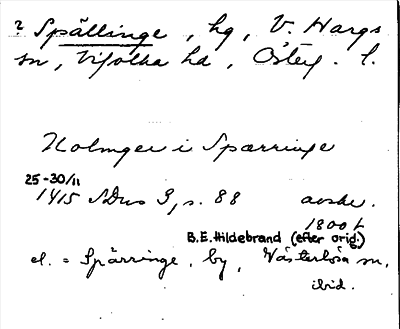 ? Spällinge, hg, V. Hargs
sn, Vifolka hd, Österg. l.
Holmger i Spærringe
25-30/11
1415 SDns 3, s. 88 avskr.
1800 t
B.E. Hildebrand (efter orig.)
el. = Spärringe, by, Västerlösa sn,
ibid.